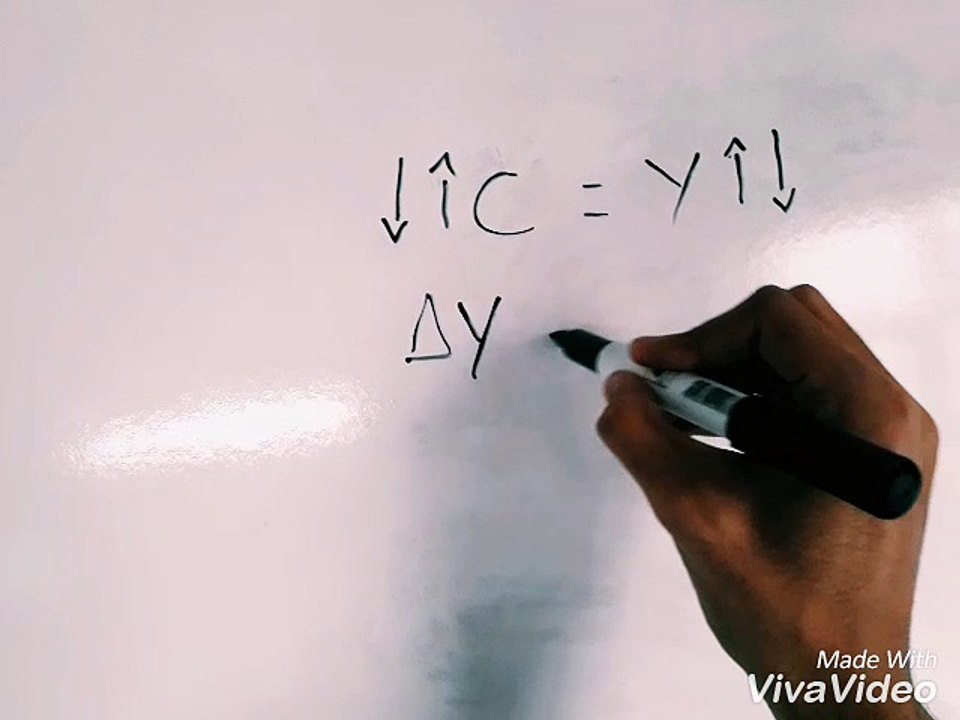 ↓↑C = Y↑↓
ΔY
Made With
VivaVideo